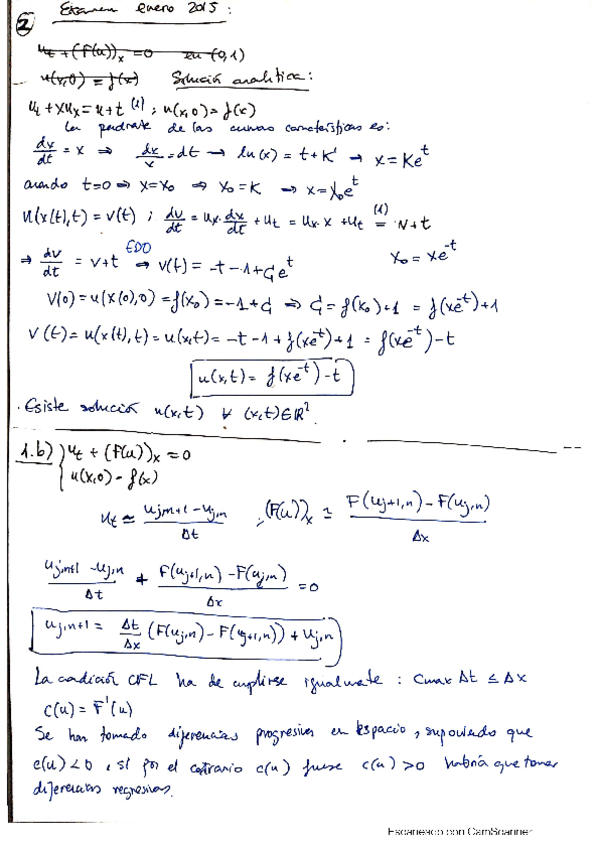 ② Examen enero 2015 :
u_t + (F(u))_x = 0 en (0,1)
u(x,0) = f(x) Solución analítica :
u_t + x u_x = u + t (1) ; u(x,0) = f(x)
La pendiente de las curvas características es :
dx/dt = x ⇒ dx/x = dt → ln(x) = t + K' → x = K e^t
cuando t=0 ⇒ x = x_0 ⇒ x_0 = K → x = x_0 e^t
u(x(t),t) = v(t) ; dv/dt = u_x · dx/dt + u_t = u_x · x + u_t =(1) v + t
⇒ dv/dt = v + t EDO ⇒ v(t) = -t - 1 + C e^t x_0 = x e^-t
v(0) = u(x(0),0) = f(x_0) = -1 + C ⇒ C = f(x_0) + 1 = f(xe^-t) + 1
v(t) = u(x(t),t) = u(x,t) = -t - 1 + f(xe^-t) + 1 = f(xe^-t) - t
u(x,t) = f(xe^-t) - t
· Existe solución u(x,t) ∀ (x,t) ∈ ℝ²
1.b) { u_t + (F(u))_x = 0
u(x,0) = f(x)
u_t ≃ (u_j,n+1 - u_j,n)/Δt ; (F(u))_x ≃ (F(u_j+1,n) - F(u_j,n))/Δx
(u_j,n+1 - u_j,n)/Δt + (F(u_j+1,n) - F(u_j,n))/Δx = 0
u_j,n+1 = Δt/Δx (F(u_j,n) - F(u_j+1,n)) + u_j,n
La condición CFL ha de cumplirse igualmente : Cmax Δt ≤ Δx
c(u) = F'(u)
Se han tomado diferencias progresivas en espacio, suponiendo que
c(u) < 0 , si por el contrario c(u) fuese c(u) > 0 habría que tomar
diferencias regresivas.
Escaneado con CamScanner